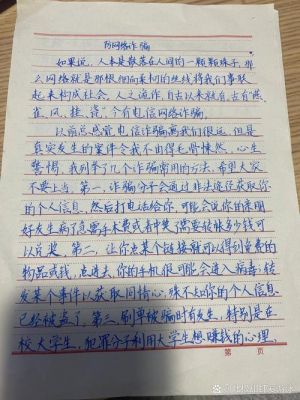 防网络诈骗
如果说，人本是散落在人间的一颗颗珠子，那
么网络就是那根细而柔韧的丝线将我们串联
起来构成社会。人之诈作，自古以来就有，古有"燕、
雀、风、挂、淹"，今有电信网络诈骗。
以前总感觉电信诈骗离我们很远，但是
真实发生的案件会我不由得毛骨悚然，心生
警惕。我列举了几个诈骗常用的方法，希望大家
不要上当。第一，诈骗分子会通过非法途径获取你
的个人信息，然后打电话给你，可能会说你的亲朋
好友生病了急需手术费或者中奖，需要转账多少钱可
以兑奖。第二，让你点某个链接就可以得到免费的
物品或钱，点进去，你的手机很可能会进入病毒；转
发某个事件以获取同情心，殊不知你的个人信息
已经被盗了。第三，刷单被骗时有发生，特别是在
校大学生，犯罪分子利用大学生想赚钱的心理，
第 页